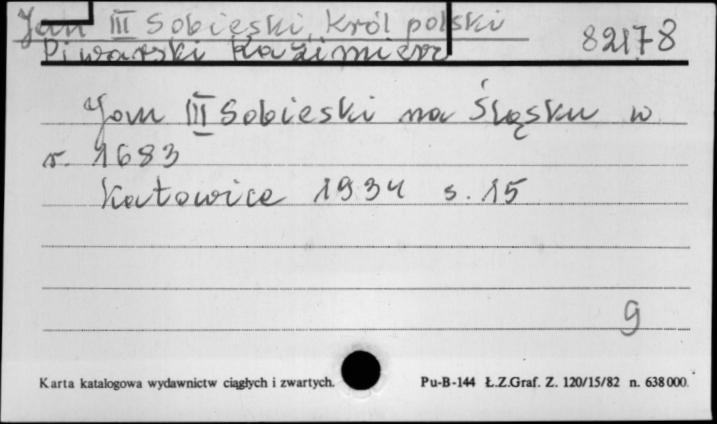 Jan III Sobieski, Król polski
82178
Piwarski Kazimierz
Jan III Sobieski na Śląsku w
r. 1683
Katowice 1934 s. 15
9
Karta katalogowa wydawnictw ciągłych i zwartych. Pu-B-144 Ł.Z.Graf. Z. 120/15/82 n. 638000.